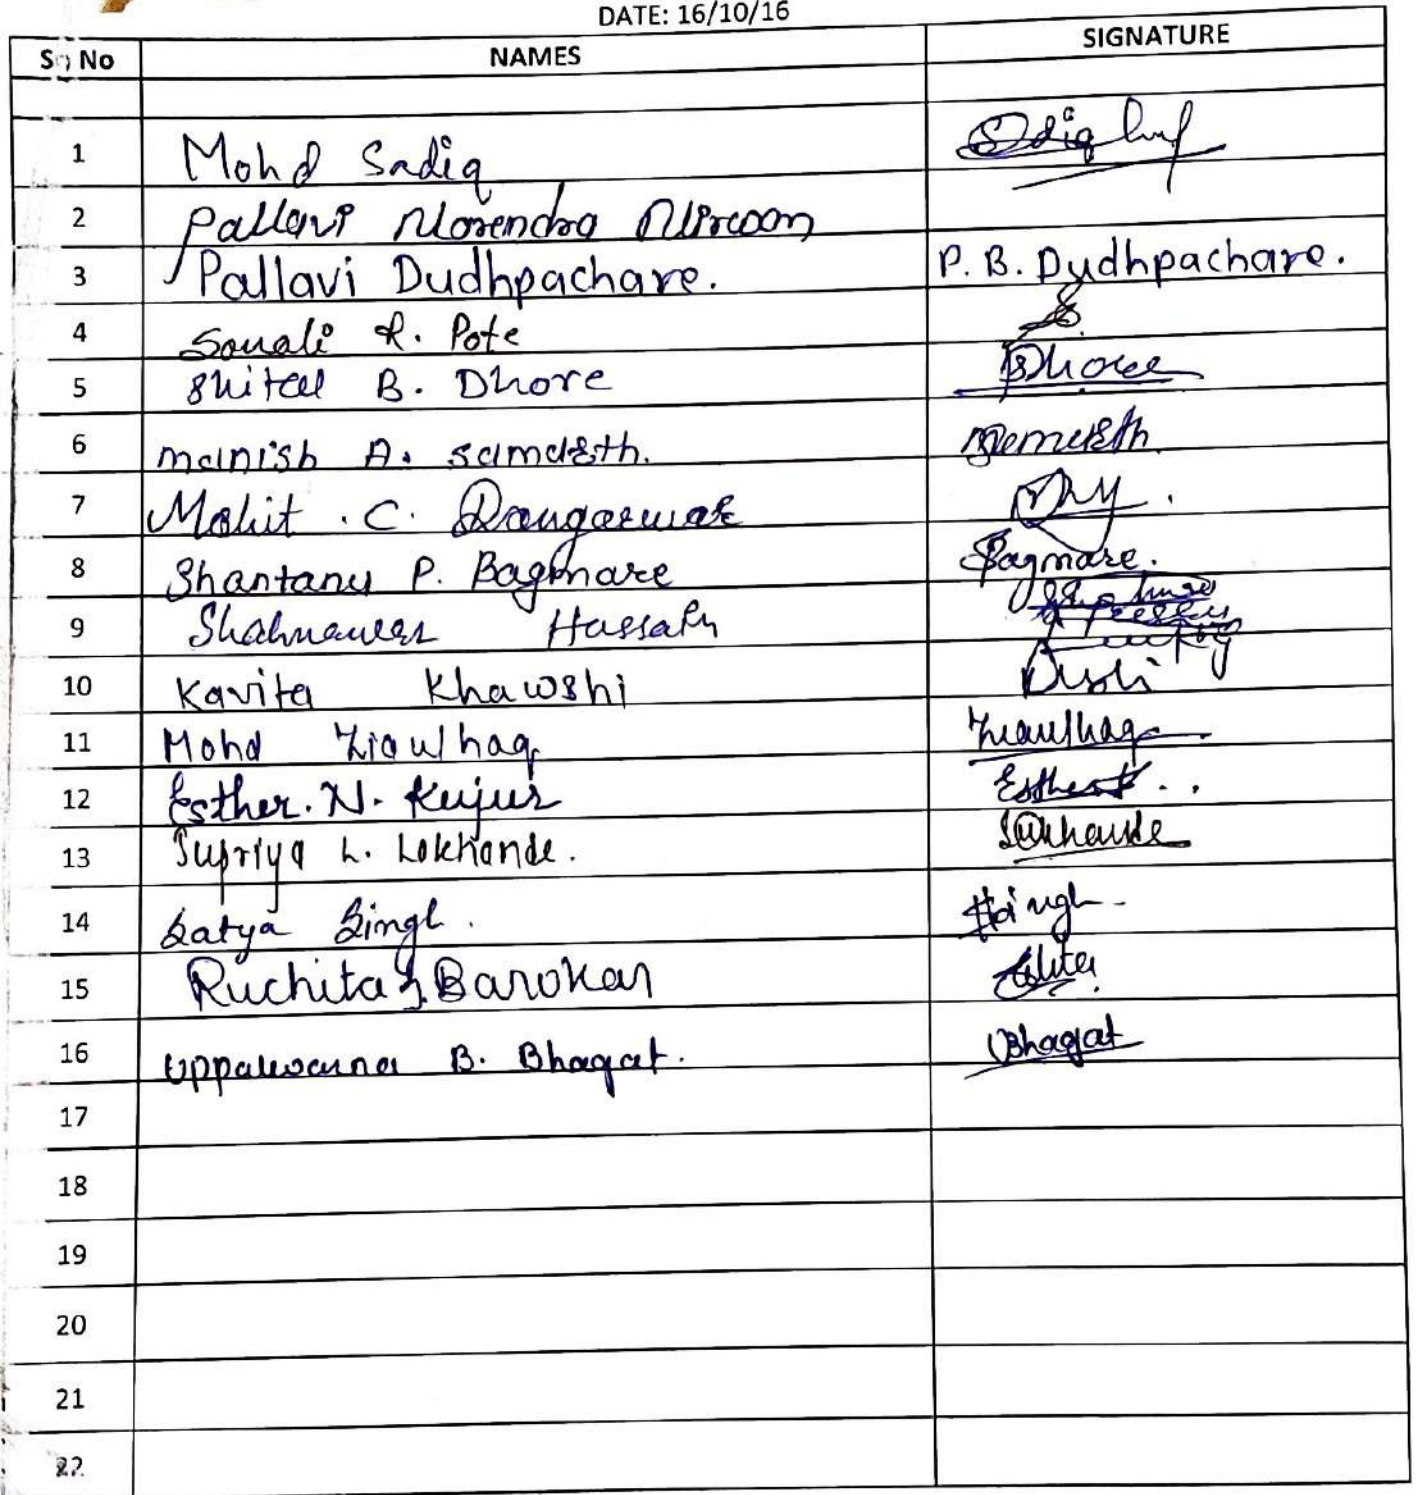 DATE: 16/10/16
Sr No NAMES SIGNATURE
1 Mohd Sadiq
2 Pallavi Narendra
3 Pallavi Dudhpachare. P. B. Dudhpachare.
4 Sonali R. Pote
5 Shital B. Dhore Dhore
6 manish A. samarth.
7 Mohit . C. Rangarwar
8 Shantanu P. Bagmare Bagmare.
9 Shahnawaz Hassain
10 Kavita Khawshi
11 Mohd Ziaulhaq Ziaulhaq
12 Esther. N. Kujur Esther
13 Supriya L. Lokhande. Lokhande
14 Satya Singh. Singh
15 Ruchita Barokar
16 Uppalwarna B. Bhagat. Bhagat
17
18
19
20
21
22